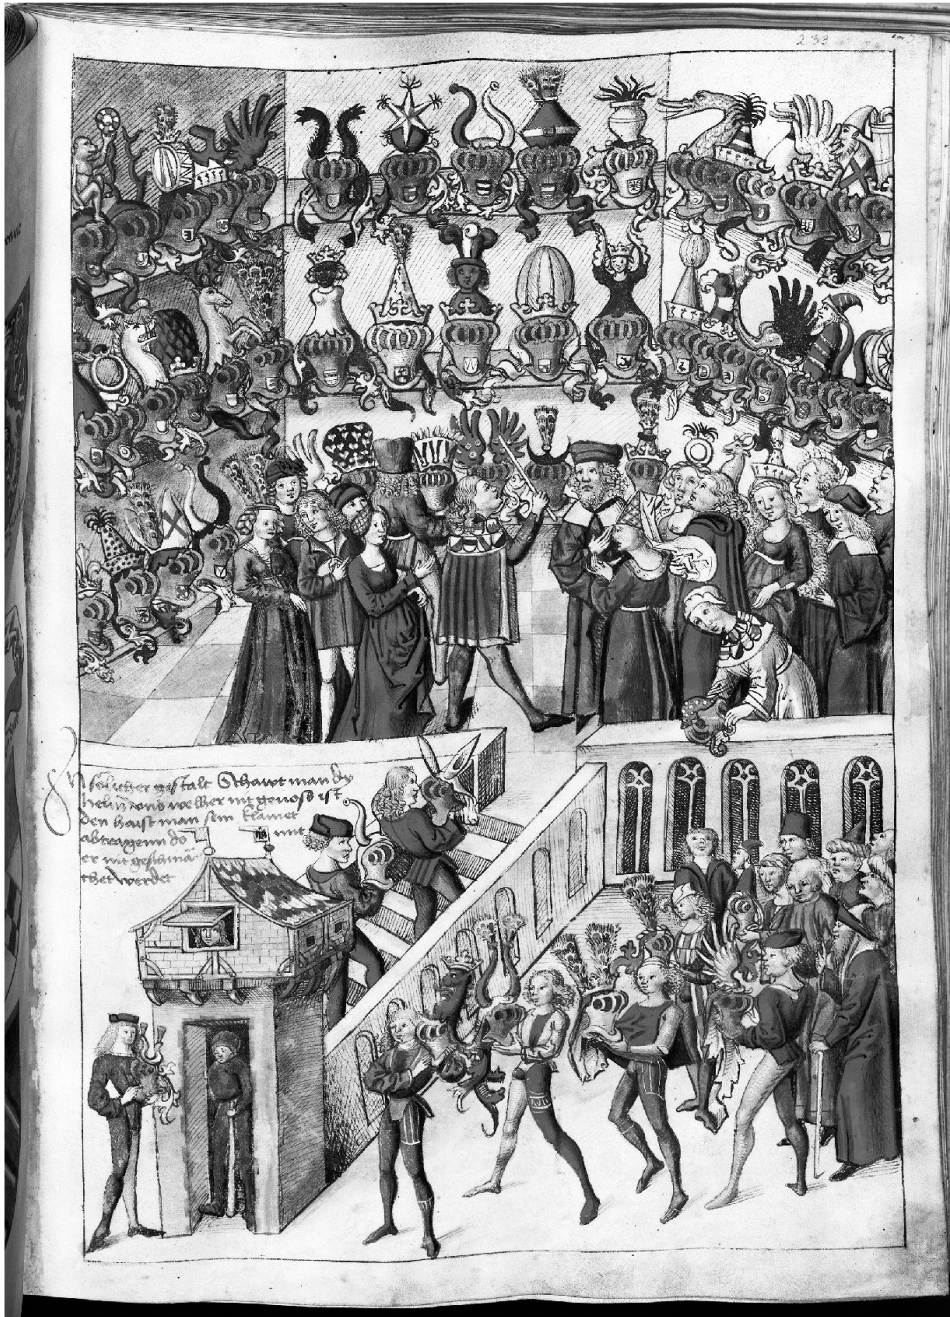 233
In solicher gestalt Schawt man dy
helm und welher nit genoss ist
den haist man sein klainet
abtragenn do mit
er nit geschma
chet werdet